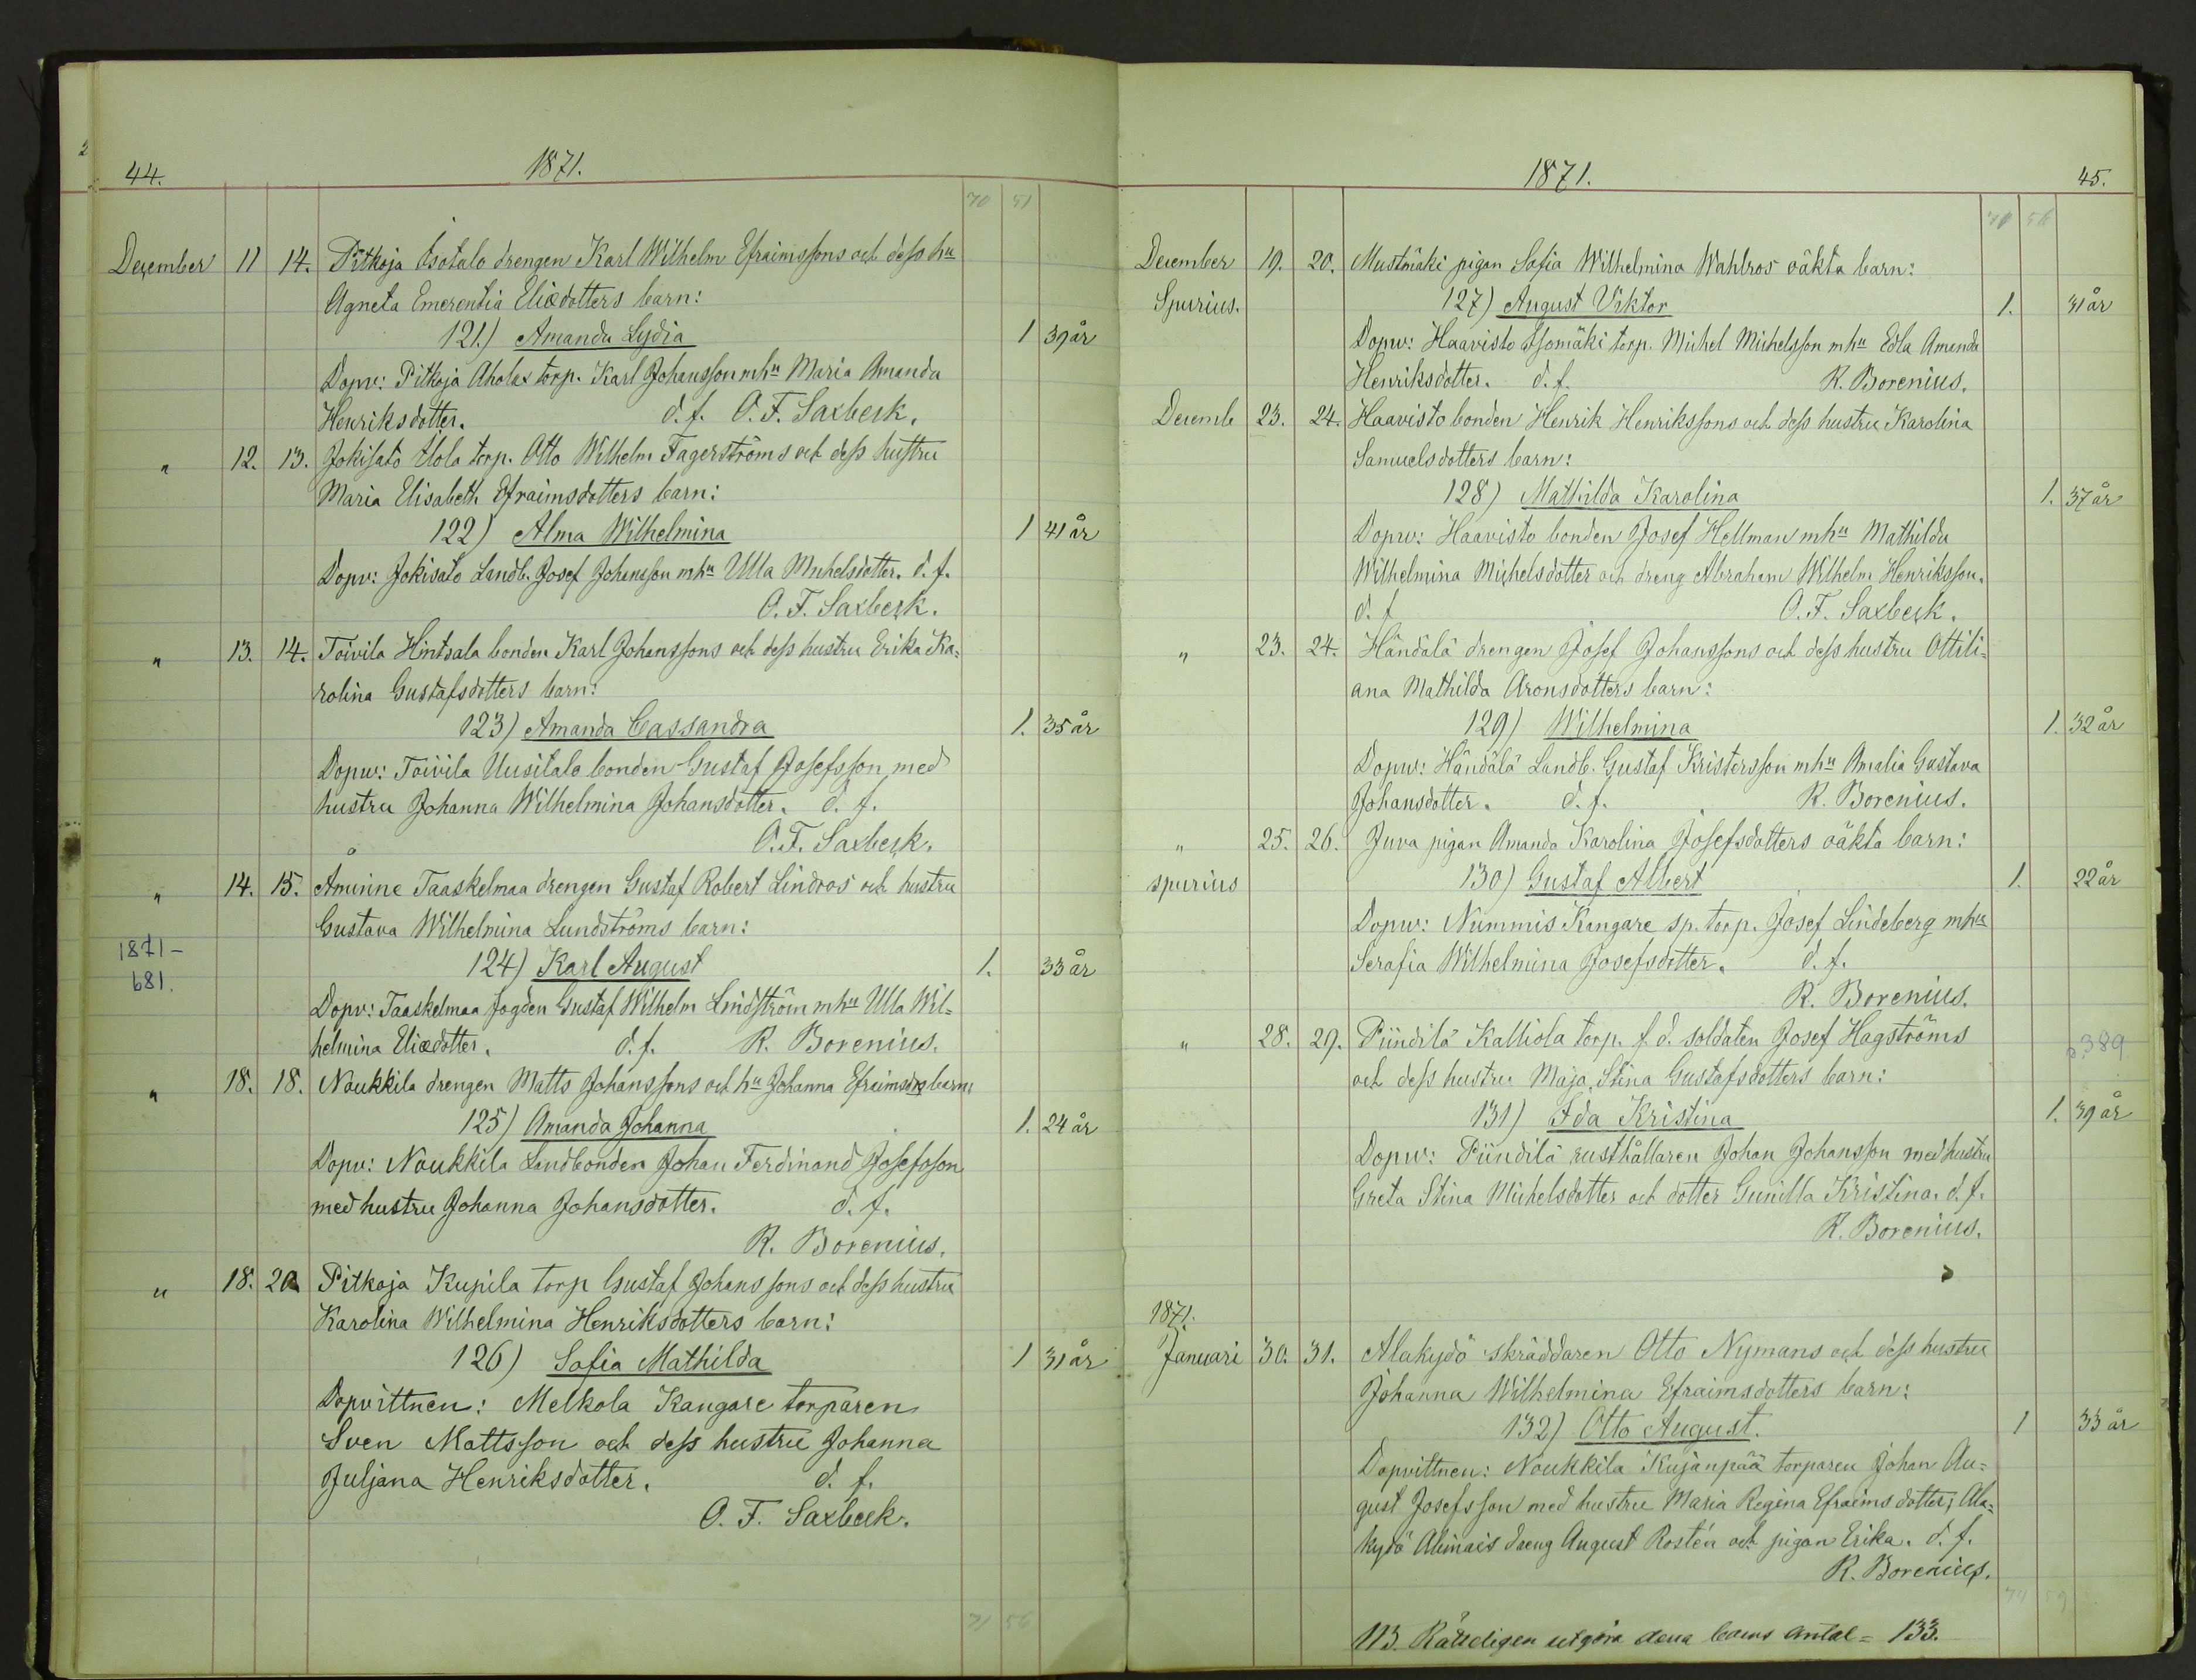 44.
1871.
70 51
December 11 14. Pitkoja Isotalo drengen Karl Wilhelm Efraimssons och dess hu
Agneta Emerentia Eliædotters barn:
121.) Amanda Lydia 1 39 år
Dopv: Pitkoja Ahola torp. Karl Johansson mhu Maria Amanda
Henriksdotter. d. f. O. F. Saxbeck.
" 12. 13. Jokisato Ilola torp. Otto Wilhelm Fagerströms och dess hustru
Maria Elisabeth Efraimsdotters barn:
122) Alma Wilhelmina 1 41 år
Dopv: Jokisato Landb. Josef Johansson mhu Ulla Michelsdotter. d. f.
O. F. Saxbeck.
" 13. 14. Toivila Hintsala bonden Karl Johanssons och dess hustru Erika Ka=
rolina Gustafsdotters barn:
123) Amanda Cassandra 1. 35 år
Dopv: Toivila Uusitalo bonden Gustaf Josefsson med
hustru Johanna Wilhelmina Johansdotter. d. f.
O. F. Saxbeck.
" 14. 15. Åminne Taaskelmaa drengen Gustaf Robert Lindros och hustru
Gustava Wilhelmina Lundströms barn:
1871-
681.
124) Karl August 1. 33 år
Dopv: Taaskelmaa fogden Gustaf Wilhelm Lindström mhu Ulla Wil=
helmina Eliædotter. d. f. R. Borenius.
" 18. 18. Noukkila drengen Matts Johanssons och hu Johanna Efraimsdrs barn:
125) Amanda Johanna 1. 24 år
Dopv: Noukkila Landbonden Johan Ferdinand Josefsson
med hustru Johanna Johansdotter. d. f.
R. Borenius.
" 18. 20. Pitkoja Kupila torp Gustaf Johanssons och dess hustru
Karolina Wilhelmina Henriksdotters barn:
126) Sofia Mathilda 1 31 år
Dopvittnen: Melkola Kangare torparen
Sven Mattsson och dess hustru Johanna
Juljana Henriksdotter. d. f.
O. F. Saxbeck.
71 56
1871.
45.
December 19. 20. Mustmäki pigan Sofia Wilhelmina Wahlros oäkta barn:
Spurius. 127) August Viktor 1. 31 år
Dopv: Haavisto Isomäki torp. Michel Michelsson mhu Edla Amanda
Henriksdotter. d. f. R. Borenius.
Decemb 23. 24. Haavisto bonden Henrik Henrikssons och dess hustru Karolina
Samuelsdotters barn:
128) Mathilda Karolina 1. 37 år
Dopv: Haavisto bonden Josef Hellman mhu Mathilda
Wilhelmina Michelsdotter och dreng Abraham Wilhelm Henriksson.
d. f O. F. Saxbeck.
" 23. 24. Händälä drengen Josef Johanssons och dess hustru Ottili=
ana Mathilda Aronsdotters barn:
129) Wilhelmina 1. 32 år
Dopv: Händälä Landb. Gustaf Kristersson mhu Amalia Gustava
Johansdotter. d. f. R. Borenius.
" 25. 26. Juva pigan Amanda Karolina Josefsdotters oäkta barn:
spurius 130) Gustaf Albert 1. 22 år
Dopv: Nummis Kangare sp. torp. Josef Lindeberg mhu
Serafia Wilhelmina Josefsdotter. d. f.
R. Borenius.
" 28. 29. Piindilä Kalliola torp. f. d. soldaten Josef Hagströms
389
och dess hustru Maja Stina Gustafsdotters barn:
131) Ida Kristina 1. 39 år
Dopv: Piindilä rusthållaren Johan Johansson med hustru
Greta Stina Michelsdotter och dotter Gunilla Kristina. d. f.
R. Borenius.
1871.
Januari 30. 31. Alakydö skräddaren Otto Nymans och dess hustru
Johanna Wilhelmina Efraimsdotters barn:
132) Otto August. 1 33 år
Dopvittnen: Noukkila Kujanpää torparen Johan Au=
gust Josefsson med hustru Maria Regina Efraimsdotter; Ala=
kydö Alinais dreng August Rostén och pigan Erika. d. f.
R. Borenius.
71 59
113 Rätteligen utgöra dena barns antal = 133.